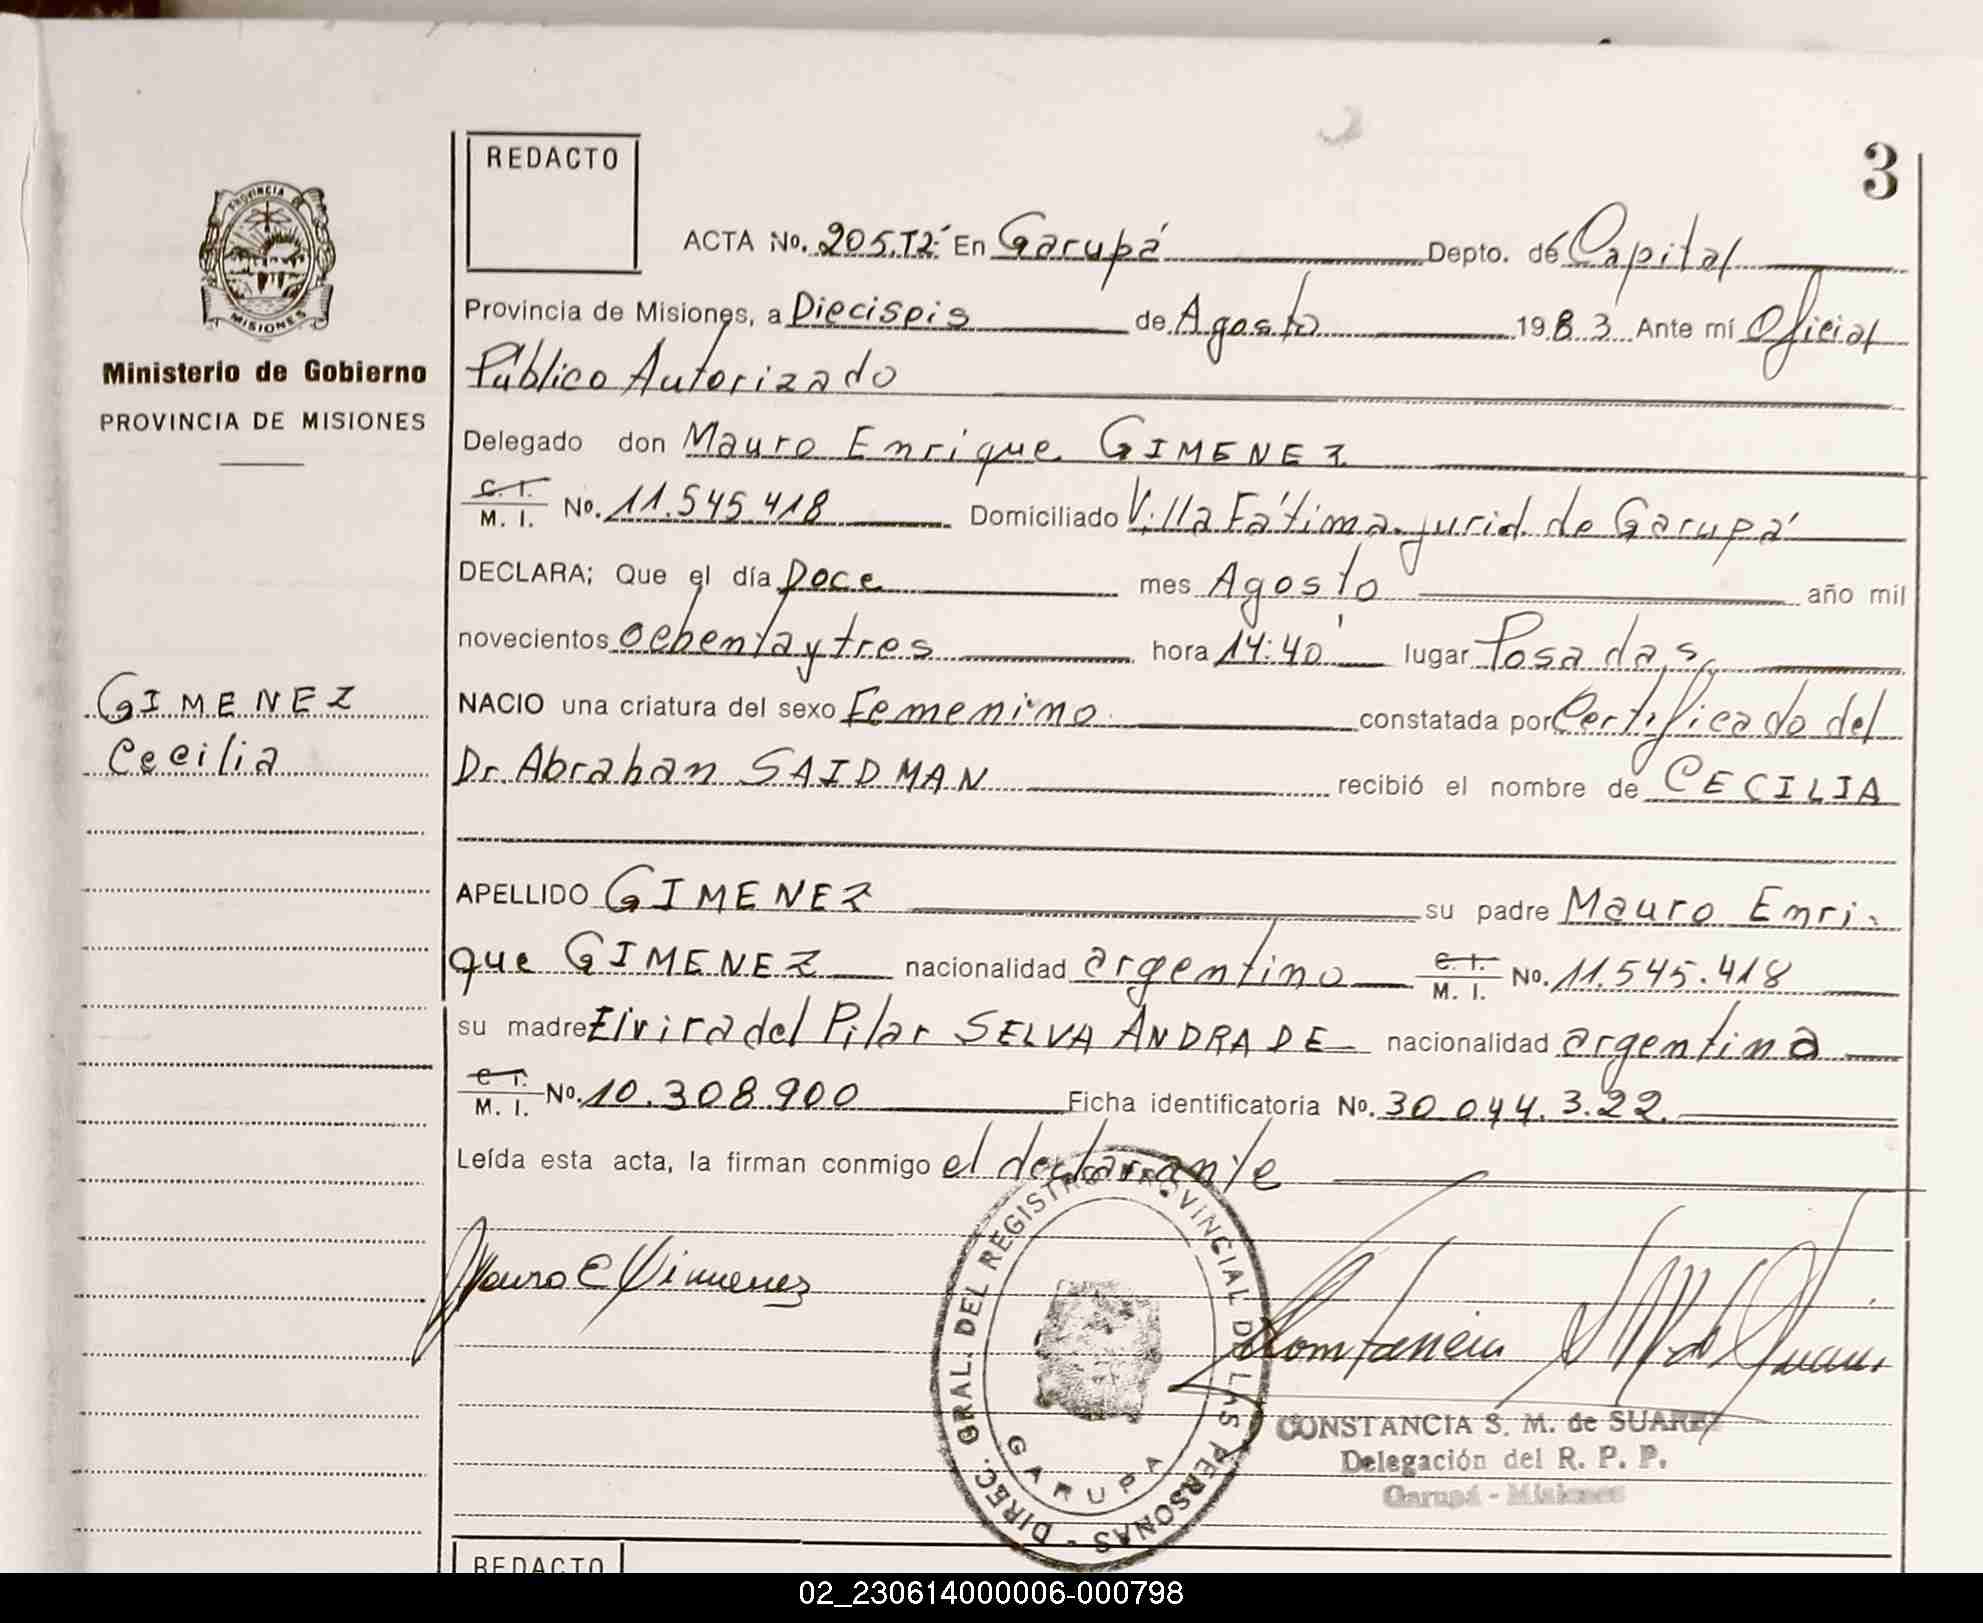 3
REDACTO
PROVINCIA DE
MISIONES
Ministerio de Gobierno
PROVINCIA DE MISIONES
GIMENEZ
Cecilia
ACTA No. 205.T2º En Garupá Depto. de Capital
Provincia de Misiones, a Dieciseis de Agosto 1983 Ante mí Oficial
Público Autorizado
Delegado don Mauro Enrique GIMENEZ
C. I. / M. I. No. 11.545.418 Domiciliado Villa Fátima-jurid. de Garupá
DECLARA; Que el día Doce mes Agosto año mil
novecientos ochenta y tres hora 14:40' lugar Posadas,
NACIO una criatura del sexo Femenino constatada por Certificado del
Dr. Abrahan SAIDMAN recibió el nombre de CECILIA
APELLIDO GIMENEZ su padre Mauro Enri-
que GIMENEZ nacionalidad argentino C. I. / M. I. No. 11.545.418
su madre Elvira del Pilar SELVA ANDRADE nacionalidad argentina
C. I. / M. I. No. 10.308.900 Ficha identificatoria No. 30.044.322.
Leída esta acta, la firman conmigo el declarante
Mauro E Gimenez
DIREC. GRAL. DEL REGISTRO PROVINCIAL DE LAS PERSONAS -
GARUPA
Constancia S M de Suarez
CONSTANCIA S. M. de SUAREZ
Delegación del R. P. P.
Garupá - Misiones
REDACTO
02_230614000006-000798